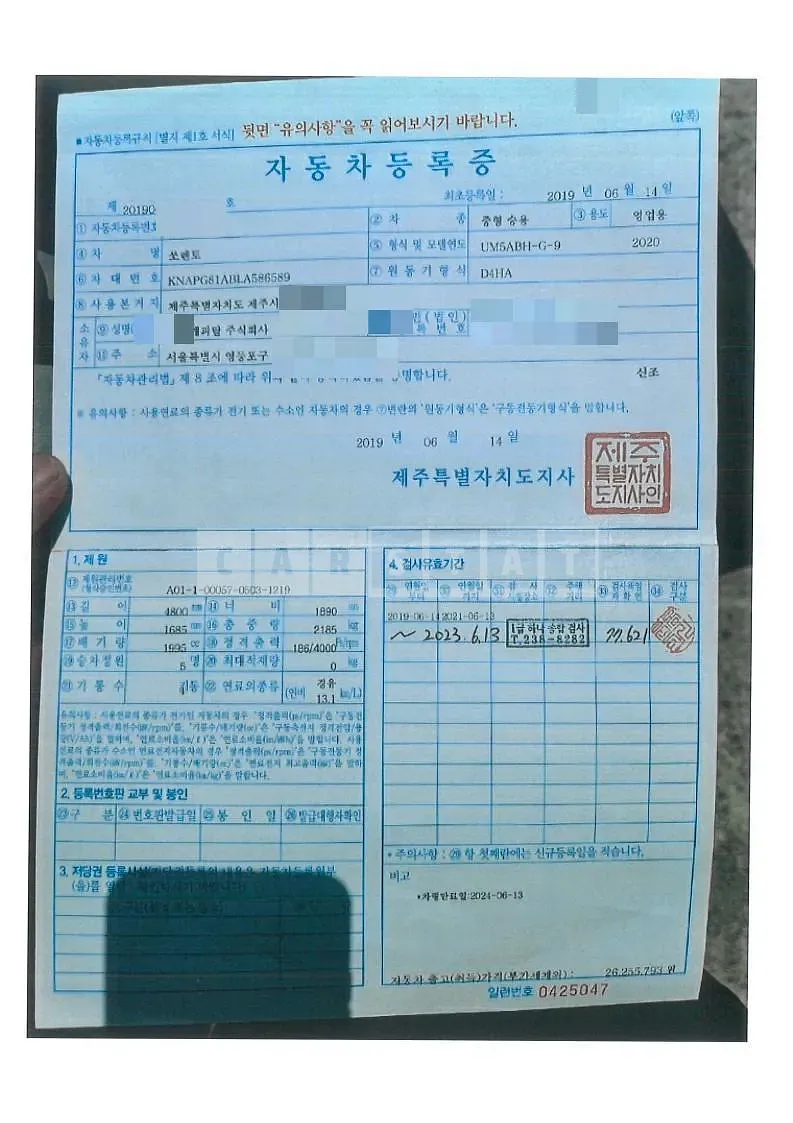 ■ 자동차등록규칙 [별지 제1호 서식] 뒷면 "유의사항"을 꼭 읽어보시기 바랍니다. (앞쪽)
자동차등록증
제 20190 호 최초등록일 : 2019 년 06 월 14 일
① 자동차등록번호 ② 차 종 중형 승용 ③ 용도 영업용
④ 차 명 쏘렌토 ⑤ 형식 및 모델연도 UM5ABH-G-9 2020
⑥ 차대번호 KNAPG81ABLA586589 ⑦ 원동기형식 D4HA
⑧ 사용본거지 제주특별자치도 제주시
소유자 ⑨ 성명( 캐피탈 주식회사 (법인) 록번호
⑪ 주 소 서울특별시 영등포구
「자동차관리법」 제 8 조에 따라 위 명합니다. 신조
※ 유의사항 : 사용연료의 종류가 전기 또는 수소인 자동차의 경우 ⑦번란의 '원동기형식'은 '구동전동기형식'을 말합니다.
2019 년 06 월 14 일
제주특별자치도지사
제주특별자치도지사인
CAR CAT
1. 제원
⑫ 제원관리번호 (형식승인번호) A01-1-00057-0503-1219
⑬ 길 이 4800 mm ⑭ 너 비 1890 mm
⑮ 높 이 1685 mm ⑯ 총 중 량 2185 kg
⑰ 배 기 량 1995 cc ⑱ 정격출력 186/4000 Ps/rpm
⑲ 승차정원 5 명 ⑳ 최대적재량 0 kg
㉑ 기 통 수 4 기통 ㉒ 연료의종류 경유 (연비 13.1 km/L)
유의사항 : 사용연료의 종류가 전기인 자동차의 경우 '정격출력(ps/rpm)'은 '구동전
동기 정격출력/회전수(kW/rpm)'를, '기통수/배기량(cc)'은 '구동축전지 정격전압/용
량(V/Ah)'을 말하며, '연료소비율(km/ℓ)'은 '연료소비율(km/kWh)'을 말합니다. 사용
연료의 종류가 수소인 연료전지자동차의 경우 '정격출력(ps/rpm)'은 '구동전동기 정
격출력/회전수(kW/rpm)'를, '기통수/배기량(cc)'은 '연료전지 최고출력(kW)'을 말하
며, '연료소비율(km/ℓ)'은 '연료소비율(km/kg)'을 말합니다.
2. 등록번호판 교부 및 봉인
㉓ 구 분 ㉔ 번호판발급일 ㉕ 봉 인 일 ㉖ 발급대행자확인
3. 저당권 등록사실(저당권등록의 내용은 자동차등록원부
(을)를 열람·확인하시기 바랍니다)
구분(설정 또는 말소)
4. 검사유효기간
연월일 부터 연월일 까지 검사 시행장소 주행 거리 검사책임 자확인 검사 구분
2019-06-14 2021-06-13
~ 2023.6.13 1급 하나 종합 검사 T.238-8282 77.621
* 주의사항 : ㉙ 항 첫째란에는 신규등록일을 적습니다.
비고
*차령만료일:2024-06-13
자동차 출고(취득)가격(부가세제외) : 26,255,793 원
일련번호 0425047